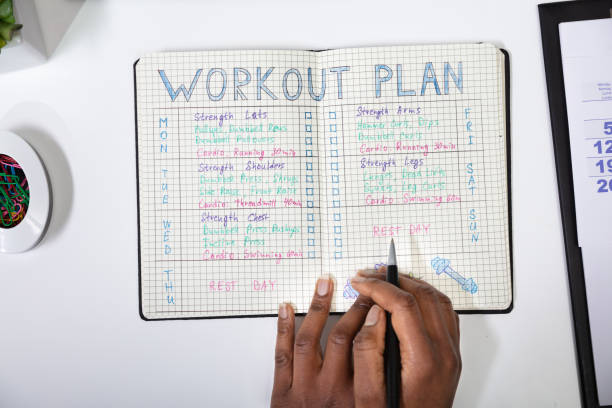 WORKOUT PLAN
MON
Strength Lats
Pullups, Dumbbell Rows
Dumbbell Pullovers
Cardio: Running 30min
TUE
Strength Shoulders
Dumbbell Press, Shrugs
Side Raise, Front Raise
Cardio: Threadmill 40min
WED
Strength Chest
Dumbbell Press, Pushups
Incline Press
Cardio: Swimming 60min
THU
REST DAY
FRI
Strength Arms
Hammer Curls, Dips
Dumbbell Curls
Cardio: Running 30min
SAT
Strength Legs
Lunges, Dead Lifts
Squats, Leg Curls
Cardio: Swimming 60min
SUN
REST DAY
5
12
19